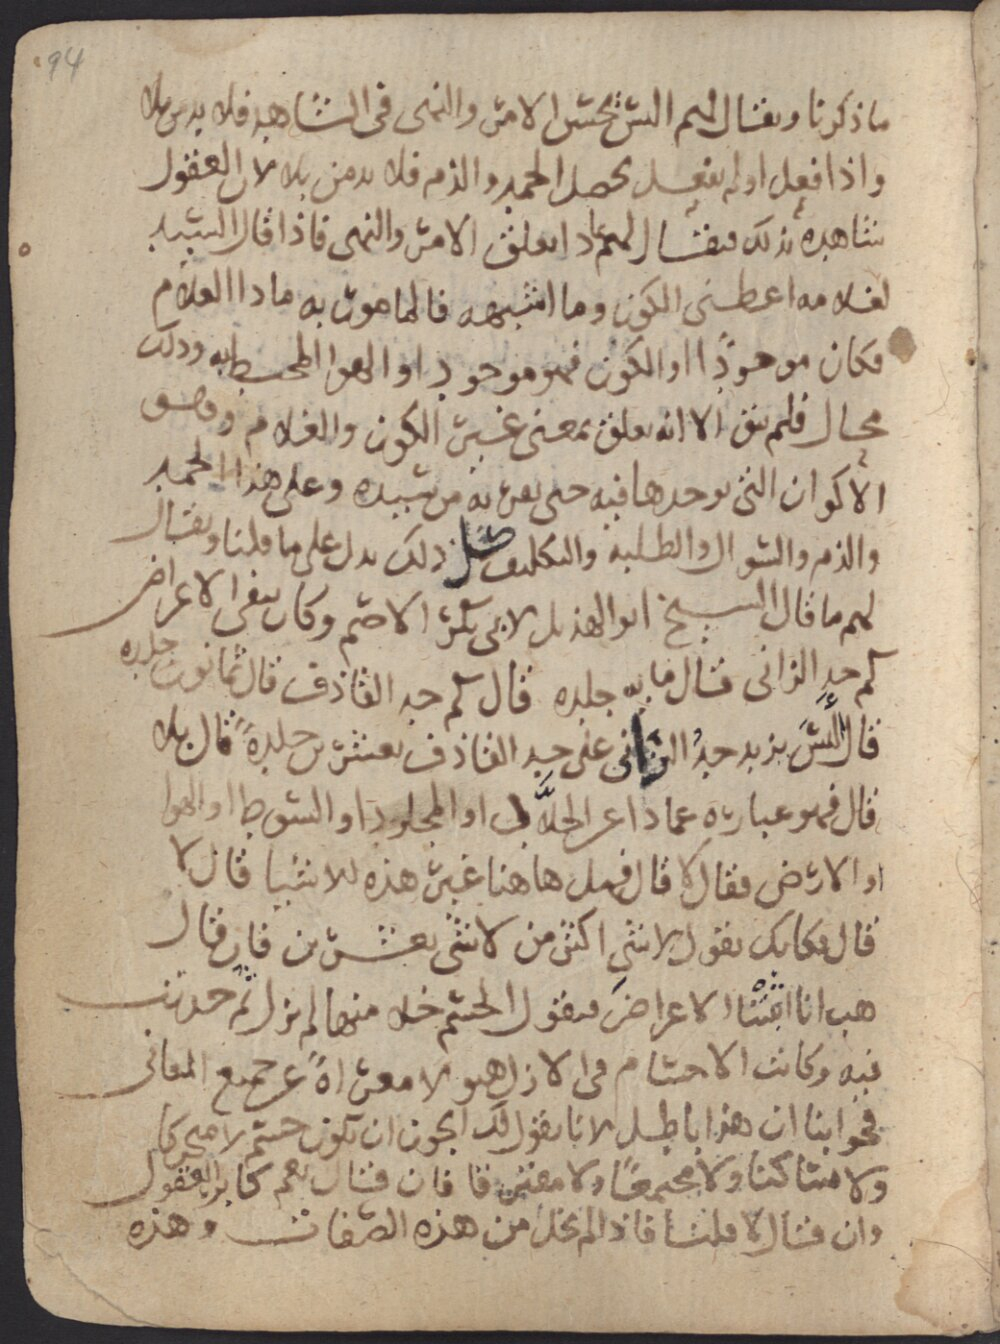 94
ما ذكرنا ويقال لهم اليس يحسن الامر والنهي في الشاهد فلا بد من بلا
واذا فعل او لم يفعل يحصل الحمد والذم فلا بد من بلا لان العقول
شاهدة بذلك فيقال لهم بماذا تعلق الامر والنهي فاذا قال السيد
لغلامه اعطني الكوز وما اشبهه فالمامور به ماذا الغلام
فكان موجودًا او الكوز فهو موجود او الهوا المحيط به وذلك
محال فلم يبق الا انه تعلق بمعنى غير الكوز والغلام وهو
الاكوان التي يوجدها فيه حتى يقربه من سيده وعلى هذا الحمد
والذم والسوال والطلبه والتكليف كل ذلك يدل على ما قلنا ويقال
لهم ما قال الشيخ ابو الهذيل لابي بكر الاصم وكان ينفي الاعراض
كم حد الزاني فقال مايه جلده قال كم حد القاذف قال ثمانون جلده
قال اليس يزيد حد الزاني على حد القاذف بعشرين جلدةً قال بلا
قال فهو عبارة عماذا عن الجلّاد او المجلود او السوط او الهوا
او الارض فقال لا قال فهل هاهنا غير هذه الاشيا قال لا
قال فكانك تقول لا شي اكثر من لا شي بعشرين فان قال
هب انا اثبتنا الاعراض فيقول الجسم خلا منها لم يزل ثم حدثت
فيه وكانت الاجسام في الازل هيولا معراةً عن جميع المعاني
فجوابنا ان هذا باطل لانا نقول لك ايجوز ان يكون جسم لا متحركا
ولا ساكنا ولا مجتمعًا ولا مفترقا فان قال نعم كابر العقول
وان قال لا قلنا فاذا لم يخل من هذه الصفات وهذه